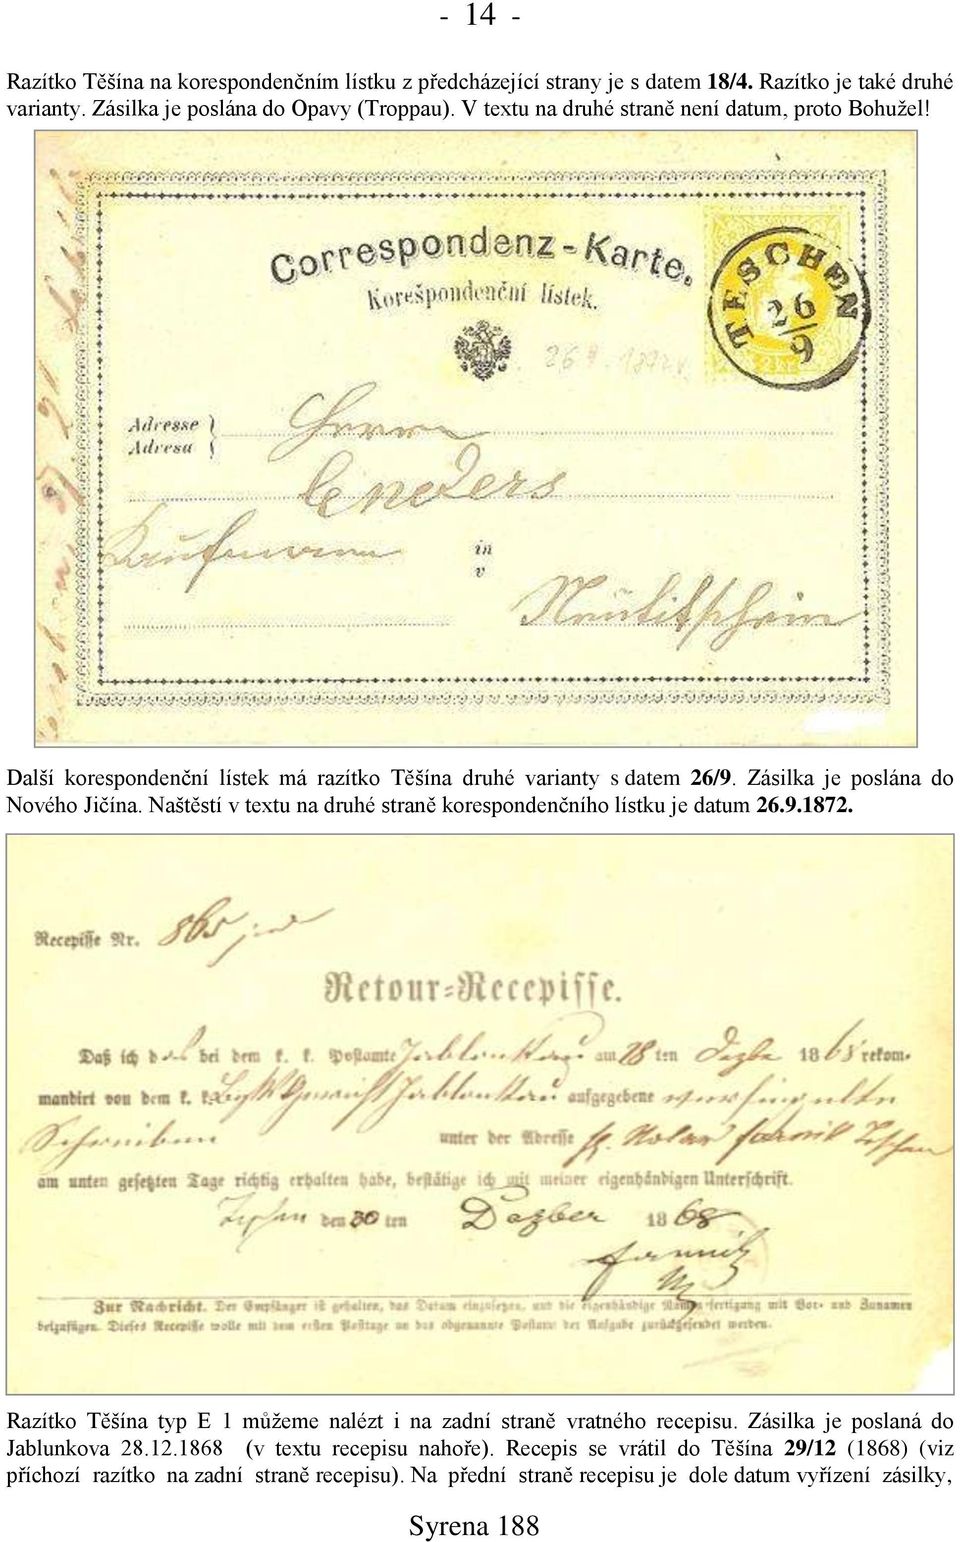 - 14 -
Razítko Těšína na korespondenčním lístku z předcházející strany je s datem 18/4. Razítko je také druhé
varianty. Zásilka je poslána do Opavy (Troppau). V textu na druhé straně není datum, proto Bohužel!
Correspondenz-Karte.
Korešpondenční lístek.
TESCHEN
26/9
2 kr
26 9. 1872
Adresse
Adresa
Herrn
Enders
Kaufmann
in
v
Neutitschein
Další korespondenční lístek má razítko Těšína druhé varianty s datem 26/9. Zásilka je poslána do
Nového Jičína. Naštěstí v textu na druhé straně korespondenčního lístku je datum 26.9.1872.
Recepisse Nr. 865
Retour-Recepisse.
Daß ich das bei dem k. k. Postamte Jablunkau am 28 ten Dezbr 1868 rekom-
mandirt von dem k. k. Jablunkau aufgegebene
Schreiben unter der Adresse Teschen
am unten gesetzten Tage richtig erhalten habe, bestätige ich mit meiner eigenhändigen Unterschrift.
Teschen den 30 ten Dezber 1868
Zur Nachricht. Der Empfänger ist gehalten, das Datum einzusetzen, und die eigenhändige Namensfertigung mit Vor- und Zunamen
beizufügen. Dieses Recepisse wolle mit dem ersten Posttage an das obgenannte Postamt der Aufgabe zurückgesendet werden.
Razítko Těšína typ E 1 můžeme nalézt i na zadní straně vratného recepisu. Zásilka je poslaná do
Jablunkova 28.12.1868 (v textu recepisu nahoře). Recepis se vrátil do Těšína 29/12 (1868) (viz
příchozí razítko na zadní straně recepisu). Na přední straně recepisu je dole datum vyřízení zásilky,
Syrena 188